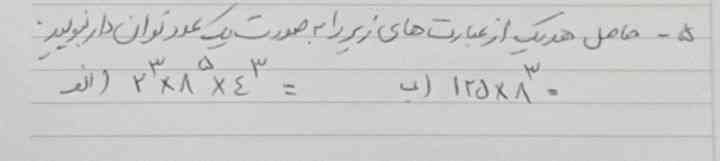 ۵ - حاصل هریک از عبارت های زیر را به صورت یک عدد توان دار بنویسید:
الف) ۲^۳ × ۸^۵ × ٤^۳ =    ب) ۱۲۵ × ۸^۳ =